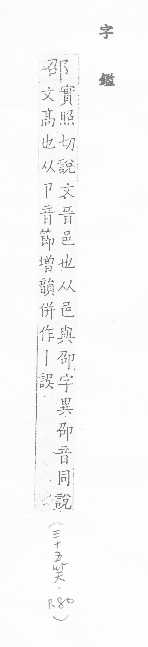 字鑑
邵實照切說文晉邑也从邑與卲字異卲音同說
文高也从卩音節增韻併作丨誤
(三十五笑・P.80)